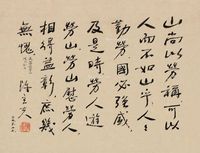 山尚以勞稱可以
人而不如山乎人人
勤勞國必強盛
及是時勞人遊
勞山勞山慰勞人
相得益新庶幾
無愧
陳立夫